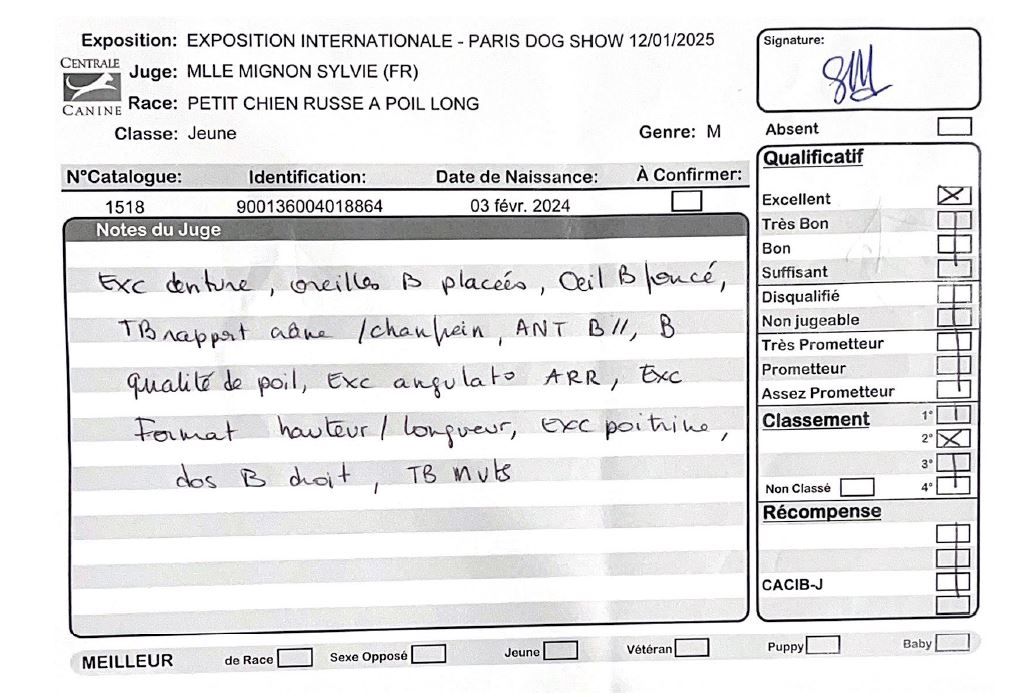 Exposition: EXPOSITION INTERNATIONALE - PARIS DOG SHOW 12/01/2025
CENTRALE CANINE
Juge: MLLE MIGNON SYLVIE (FR)
Race: PETIT CHIEN RUSSE A POIL LONG
Classe: Jeune Genre: M
N°Catalogue: Identification: Date de Naissance: À Confirmer:
1518 900136004018864 03 févr. 2024
Notes du Juge
Exc denture, oreilles B placées, Oeil B foncé,
TB rapport crâne / chanfrein, ANT B //, B
qualité de poil, Exc angulato ARR, Exc
Format hauteur / longueur, Exc poitrine,
dos B droit, TB mvts
Signature:
Absent
Qualificatif
Excellent
Très Bon
Bon
Suffisant
Disqualifié
Non jugeable
Très Prometteur
Prometteur
Assez Prometteur
Classement 1°
2°
3°
Non Classé 4°
Récompense
CACIB-J
MEILLEUR de Race Sexe Opposé Jeune Vétéran Puppy Baby